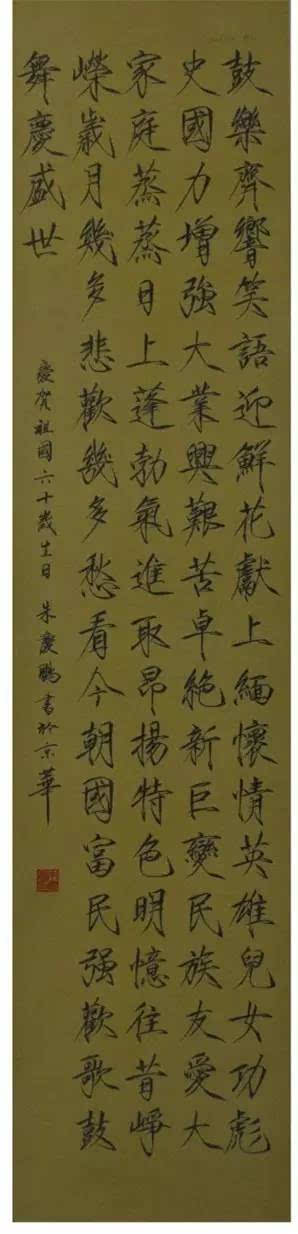 鼓樂齊響笑語迎鮮花獻上緬懷情英雄兒女功彪
史國力增強大業興艱苦卓絕新巨變民族友愛大
家庭蒸蒸日上蓬勃氣進取昂揚特色明憶往昔崢
嶸歲月幾多悲歡幾多愁看今朝國富民强歡歌鼓
舞慶盛世
慶贺祖國六十歲生日 朱慶鵬書於京華